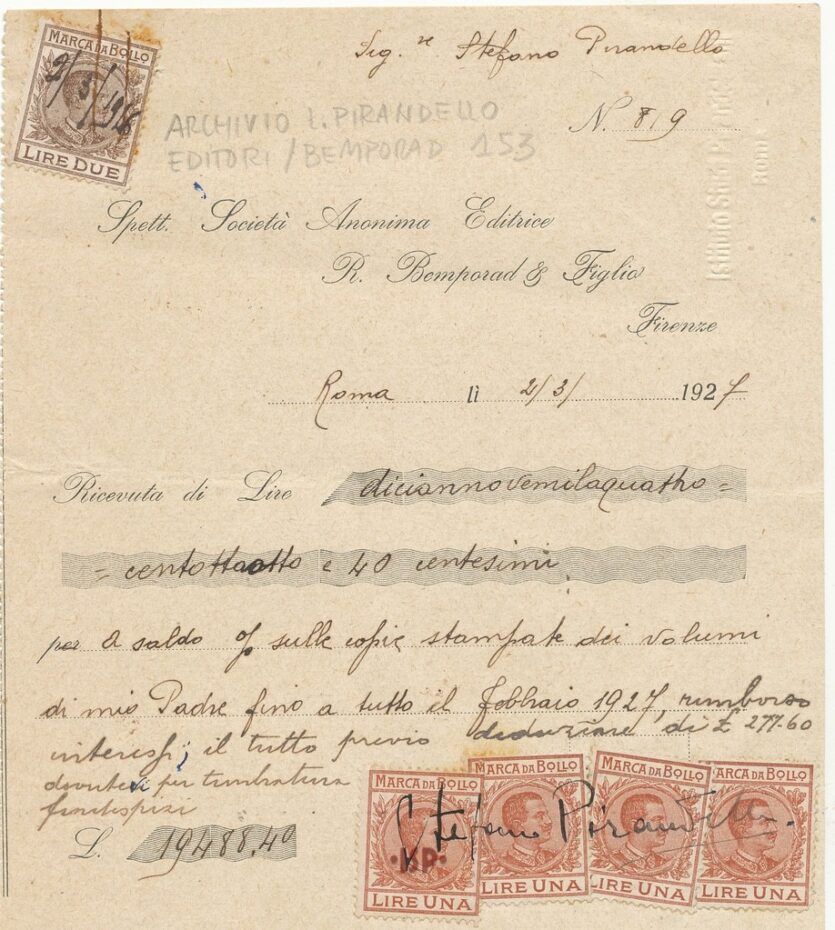 MARCA DA BOLLO
LIRE DUE
Sig.re Stefano Pirandello
ARCHIVIO L. PIRANDELLO
EDITORI / BEMPORAD 153
N. 819
Spett. Società Anonima Editrice
R. Bemporad & Figlio
Firenze
Roma lì 2/3/ 1927
Ricevuta di Lire diciannovemilaquattro=
=centottaotto e 40 centesimi
per a saldo % sulle copie stampate dei volumi
di mio Padre fino a tutto il febbraio 1927, rimborso
interessi, il tutto previo deduzione di £ 277.60
dovutevi per timbratura
frontespizi
L. 19488,40
MARCA DA BOLLO MARCA DA BOLLO MARCA DA BOLLO MARCA DA BOLLO
Stefano Pirandello.
LIRE UNA LIRE UNA LIRE UNA LIRE UNA